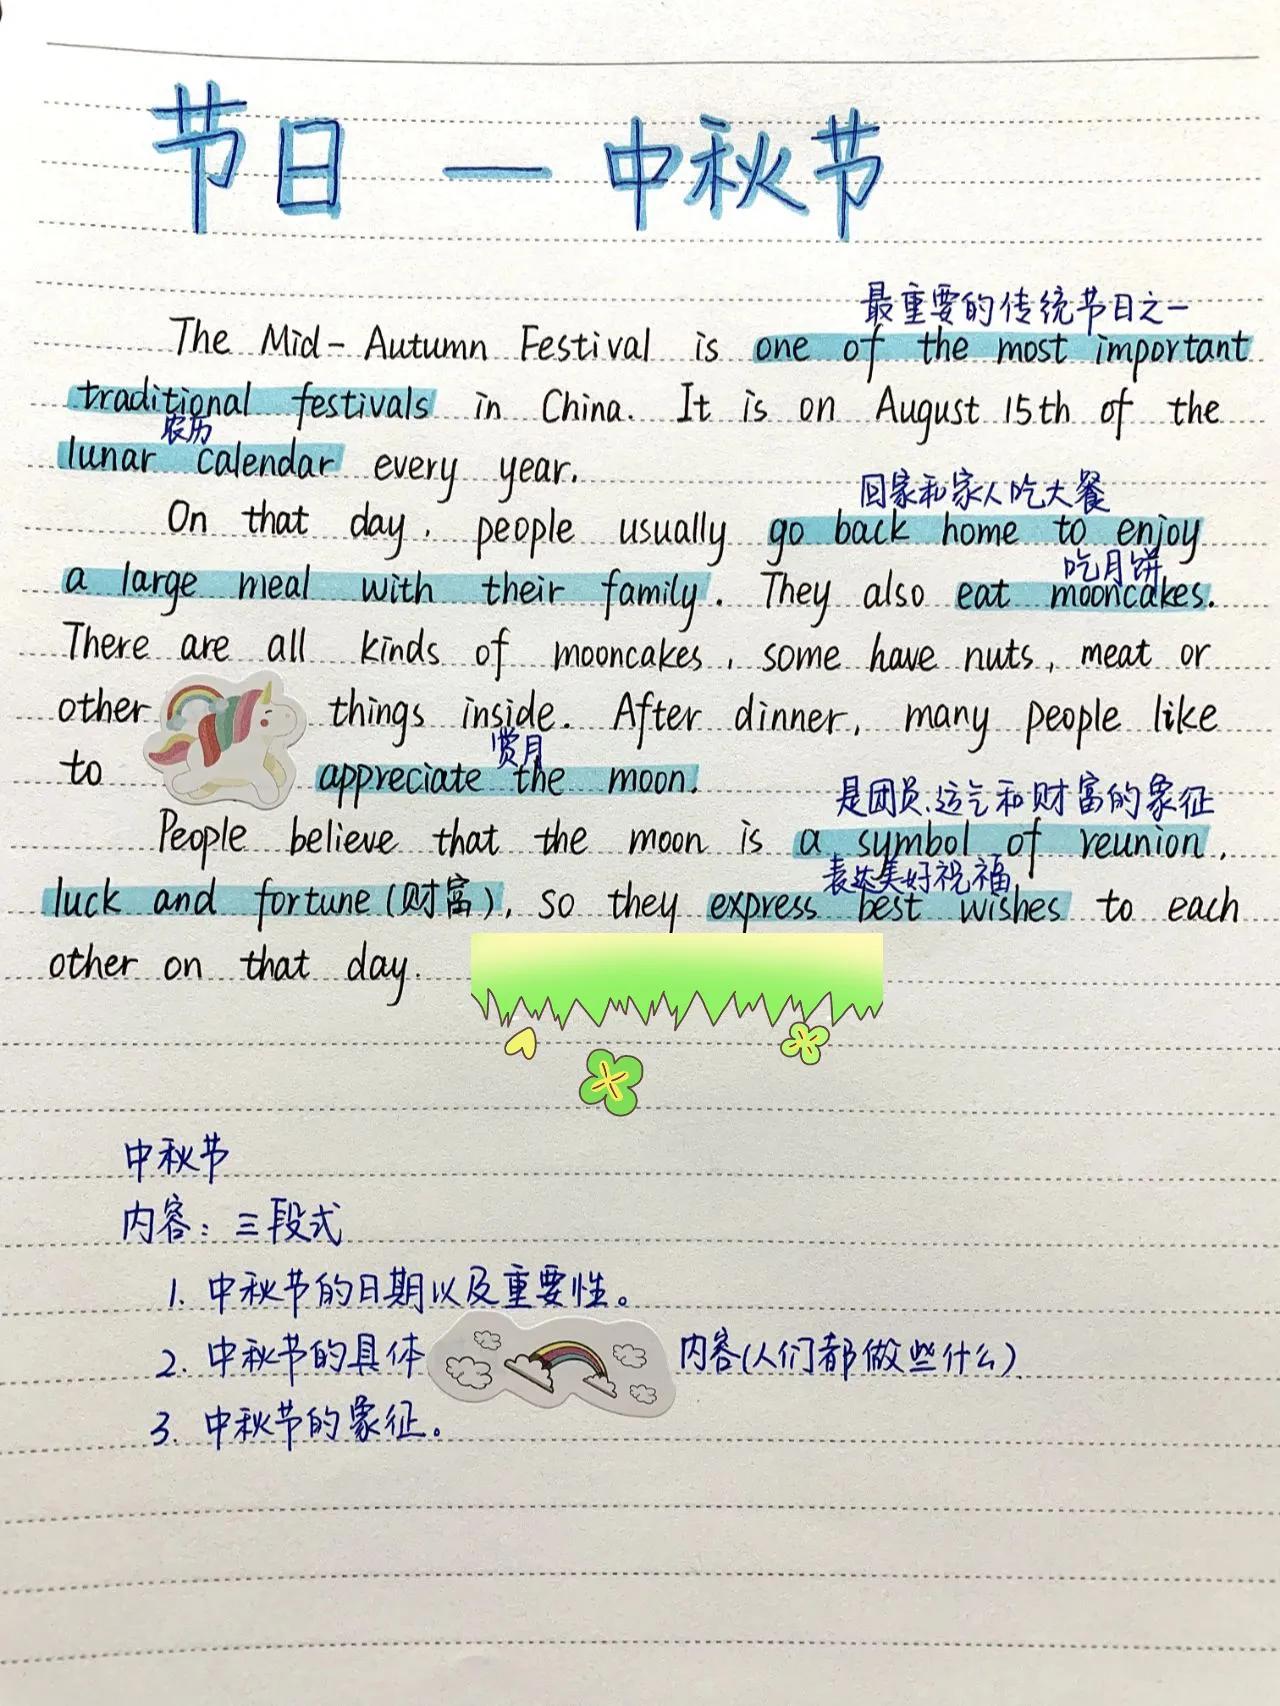 节日 — 中秋节
最重要的传统节日之一
The Mid-Autumn Festival is one of the most important
traditional festivals in China. It is on August 15th of the
农历
lunar calendar every year.
回家和家人吃大餐
On that day, people usually go back home to enjoy
吃月饼
a large meal with their family. They also eat mooncakes.
There are all kinds of mooncakes, some have nuts, meat or
other things inside. After dinner, many people like
赏月
to appreciate the moon.
是团员、运气和财富的象征
People believe that the moon is a symbol of reunion,
表达美好祝福
luck and fortune (财富), so they express best wishes to each
other on that day.
中秋节
内容：三段式
1. 中秋节的日期以及重要性。
2. 中秋节的具体内容(人们都做些什么)
3. 中秋节的象征。